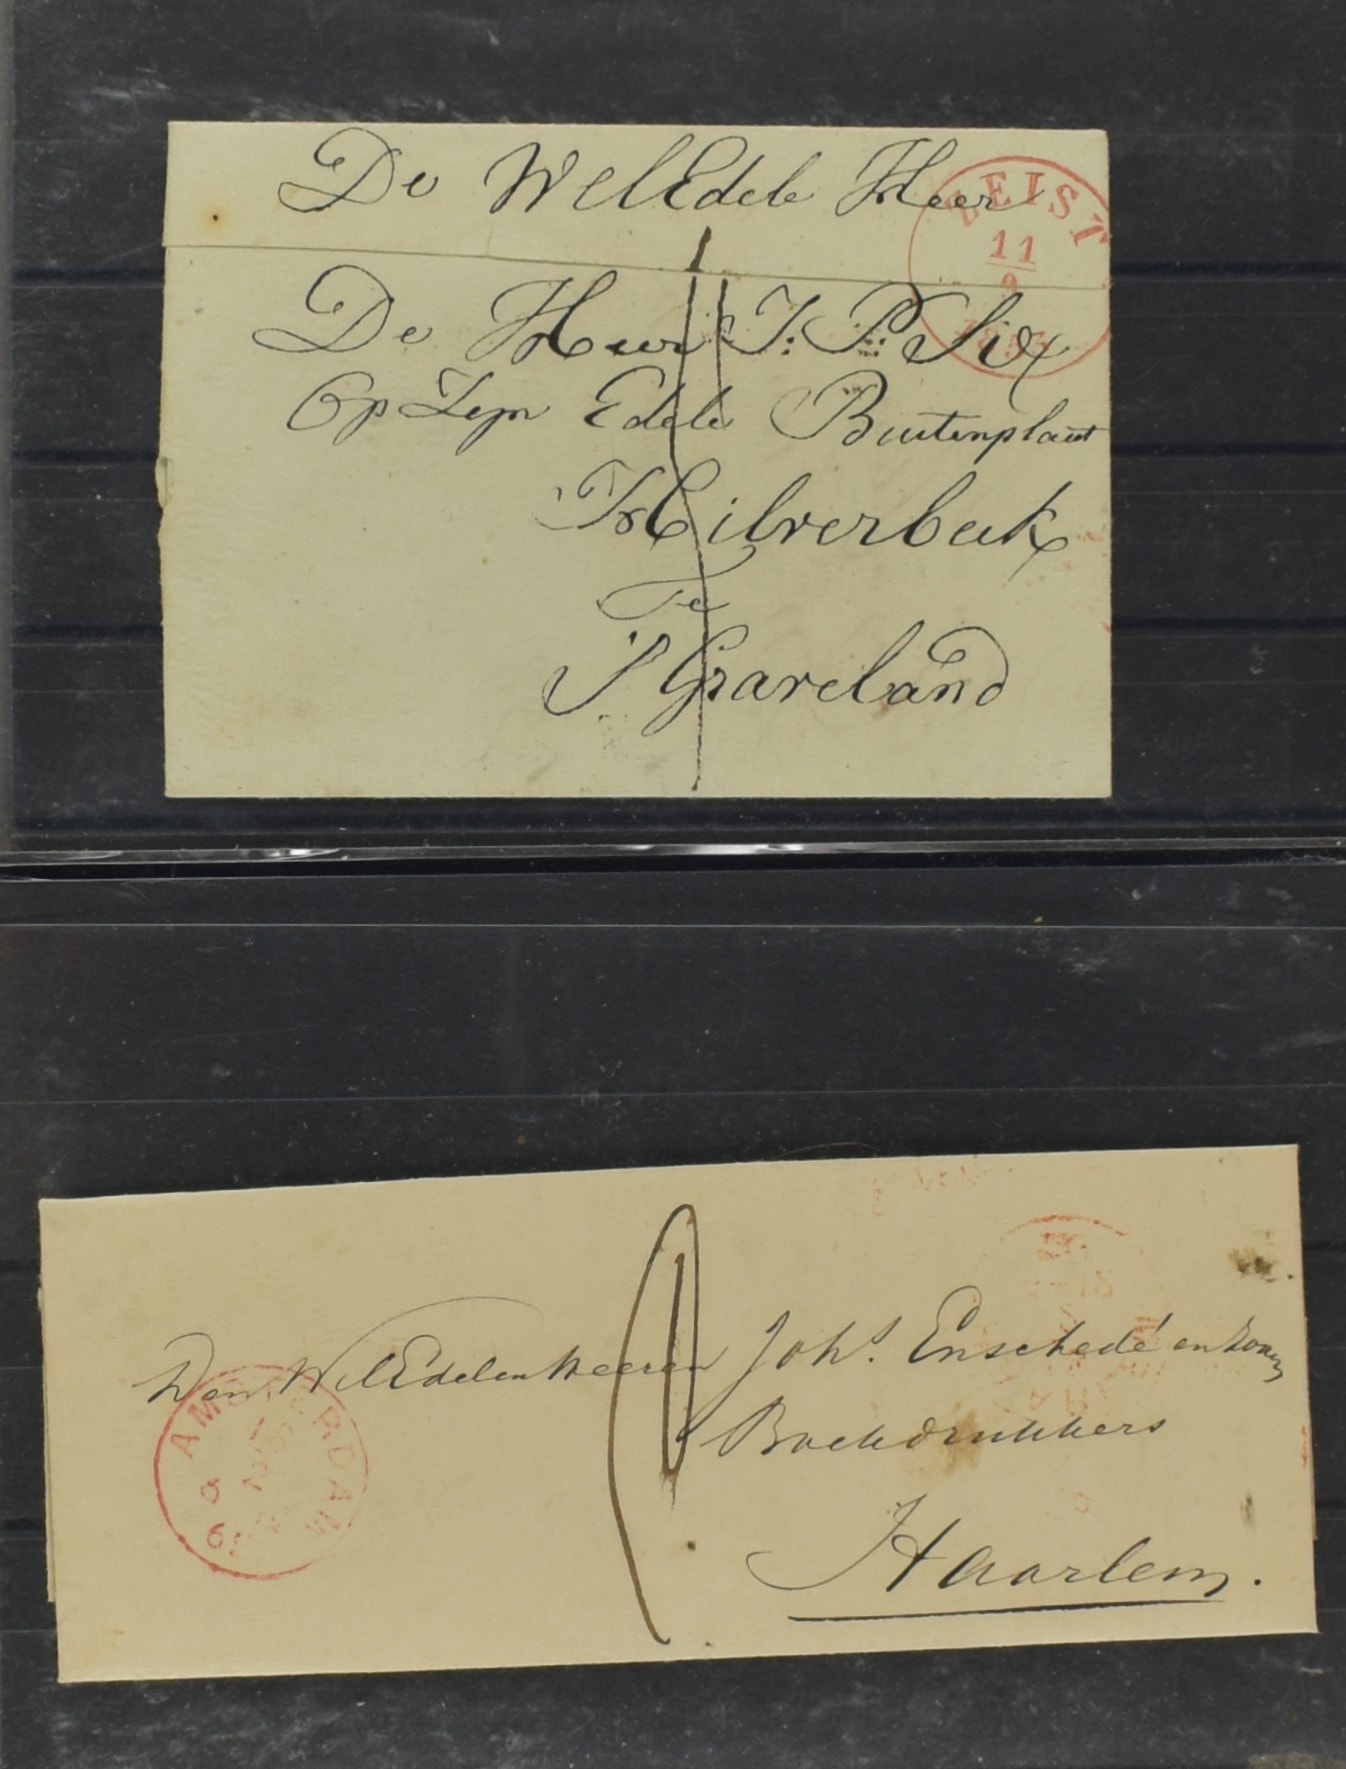 De WelEdele Heer
ZEIST
11
9
De Heer J: P: Six
Op Zyn Edele Buitenplaats
Hilverbeek
Te
S Graveland
Den WelEdelen Heeren Johs. Enschedé en Zonen
AMSTERDAM
Boekdrukkers
Haarlem.